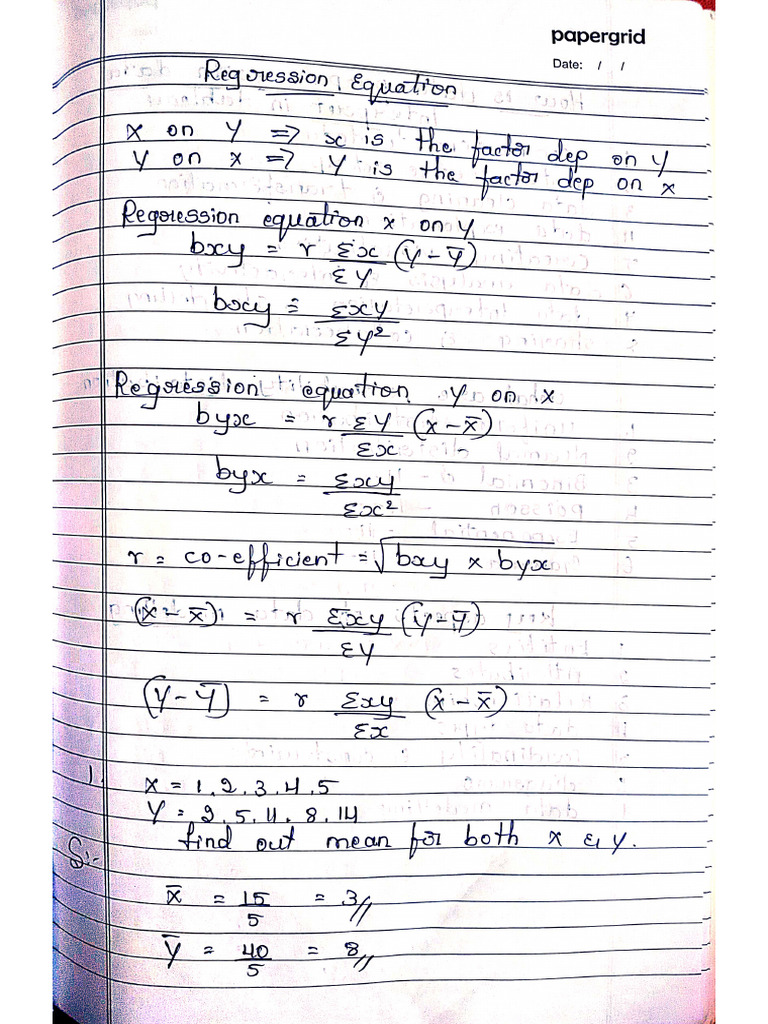 papergrid
Date: / /
Regression Equation
X on Y => x is the factor dep on Y
Y on x => Y is the factor dep on x
Regression equation x on Y
bxy = r Σx/ΣY (Y - Ȳ)
bxy = Σxy/ΣY²
Regression equation Y on X
byx = r ΣY/Σx (x - x̄)
byx = Σxy/Σx²
r = co-efficient = √bxy x byx
(x - x̄) = r Σxy/ΣY (Y - Ȳ)
(Y - Ȳ) = r Σxy/Σx (x - x̄)
1. X = 1, 2, 3, 4, 5
Y = 2, 5, 11, 8, 14
find out mean for both x & y.
S:-
x̄ = 15/5 = 3//
Ȳ = 40/5 = 8//